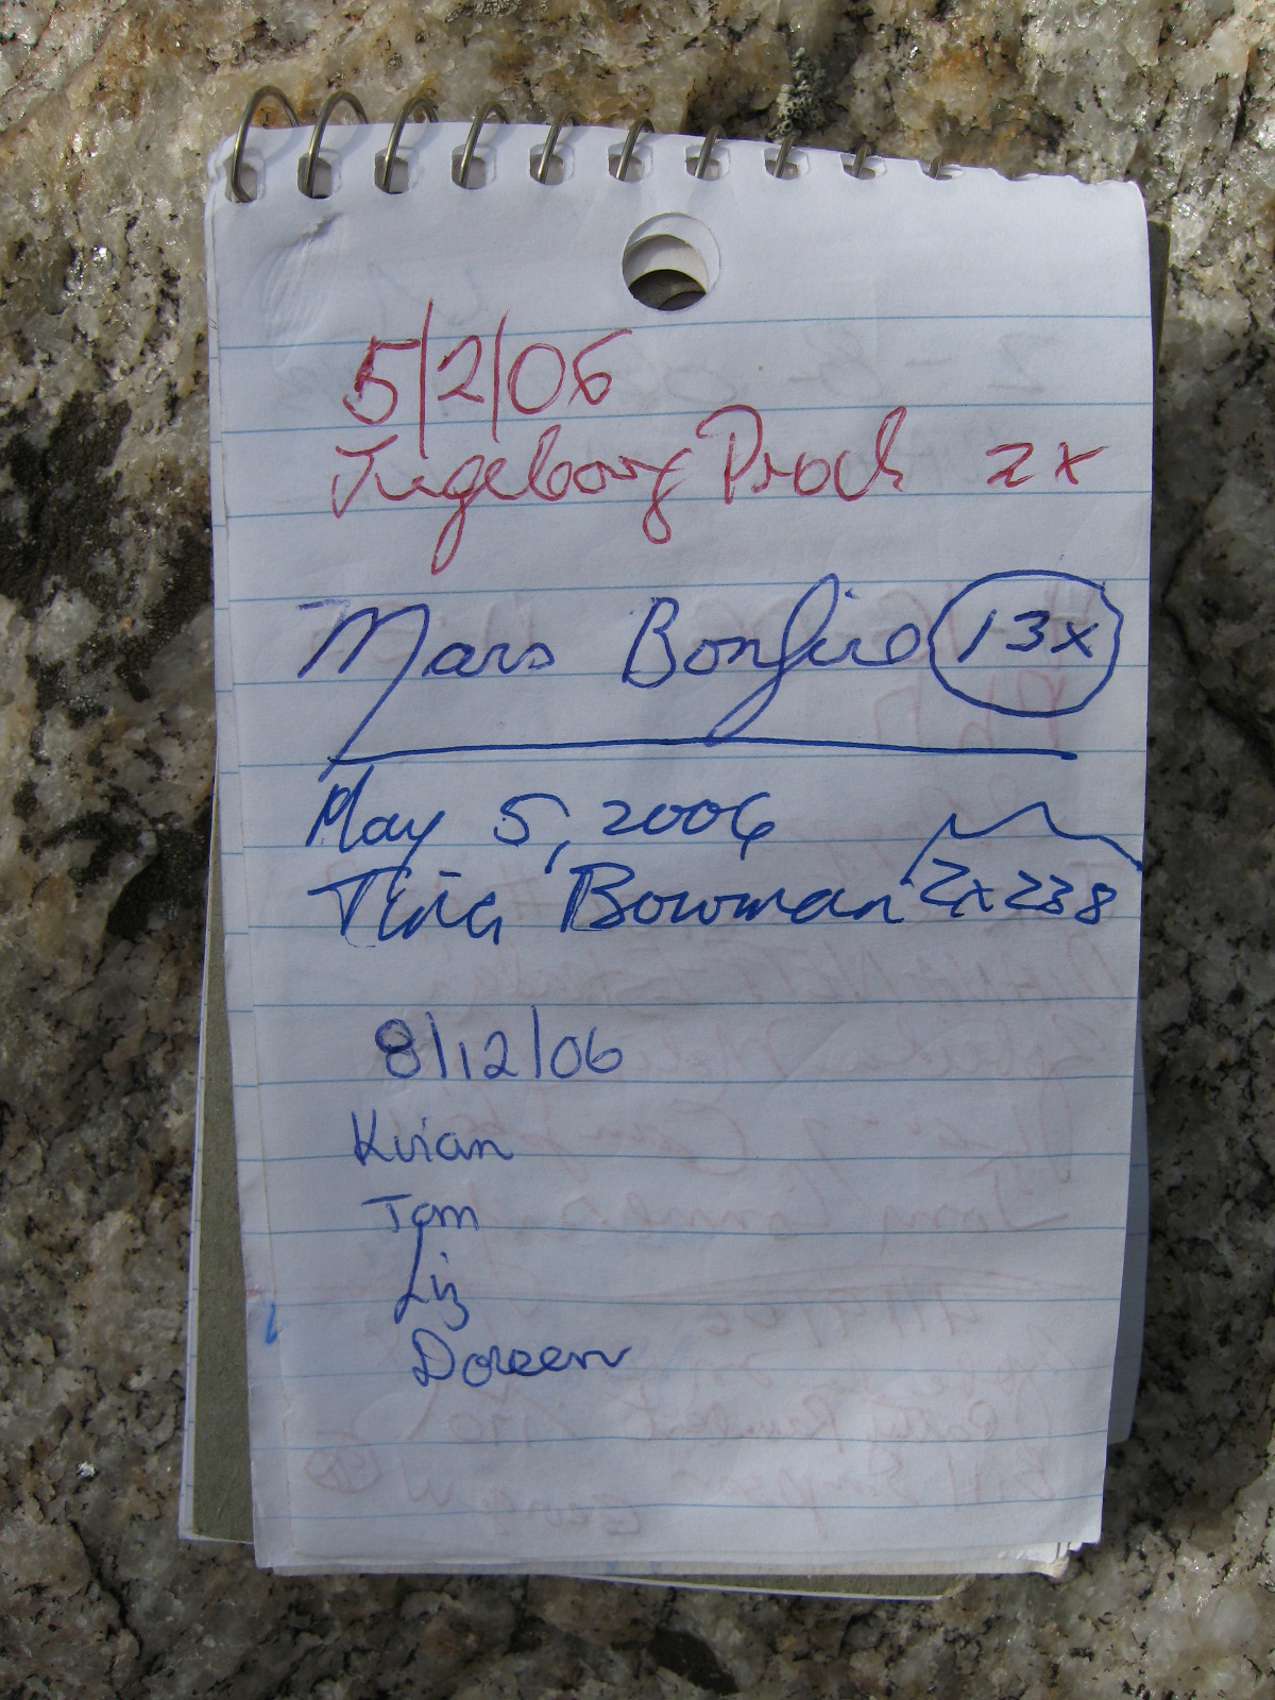 5/2/06
Ingeborg Proch 2x
Mars Bonfire 13x
May 5, 2006
Tina Bowman 2x238
8/12/06
Kvian
Tom
Liz
Doreen